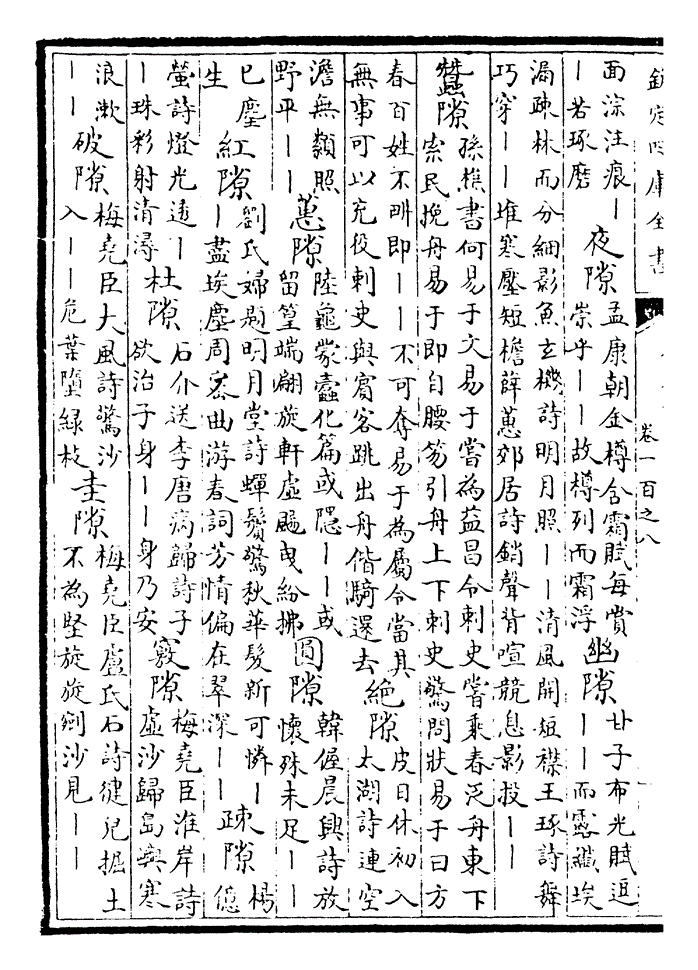 欽定四庫全書
卷一百之八
面淙注痕丨
丨若琢磨
夜隙
孟康朝金樽含霜賦每賞
崇乎丨丨故樽列而霜浮
幽隙
甘子布光賦逗
丨丨而露纖埃
漏疎林而分細影魚玄機詩明月照丨丨清風開短襟王琢詩舞
巧穿丨丨堆寒壓短檐薛蕙郊居詩銷聲背喧競息影投丨丨
蠶隙
孫樵書何易于文易于嘗為益昌令刺史嘗乘春泛舟東下
索民挽舟易于即自腰笏引舟上下刺史驚問狀易于曰方
春百姓不耕即丨丨不可奪易于為屬令當其
無事可以充役刺史與賓客跳出舟偕騎還去
絶隙
皮日休初入
太湖詩連空
澹無纇照
野平丨丨
蕙隙
陸龜蒙蠹化篇或隱丨丨或
留篁端翩旋軒虛颺曳紛拂
圓隙
韓偓晨興詩放
懷殊未足丨丨
已塵
生
紅隙
劉氏婦題明月堂詩蟬鬢驚秋華髮新可憐丨
丨盡埃塵周密曲游春詞芳情偏在翠深丨丨
疎隙
楊
億
螢詩燈光透丨
丨珠彩射清潯
杜隙
石介送李唐病歸詩子
欲治子身丨丨身乃安
竅隙
梅堯臣淮岸詩
虛沙歸島嶼寒
浪漱
丨丨
破隙
梅堯臣大風詩驚沙
入丨丨危葉墮緑枝
圭隙
梅堯臣盧氏石詩健兒掘土
不為堅旋旋劀沙見丨丨